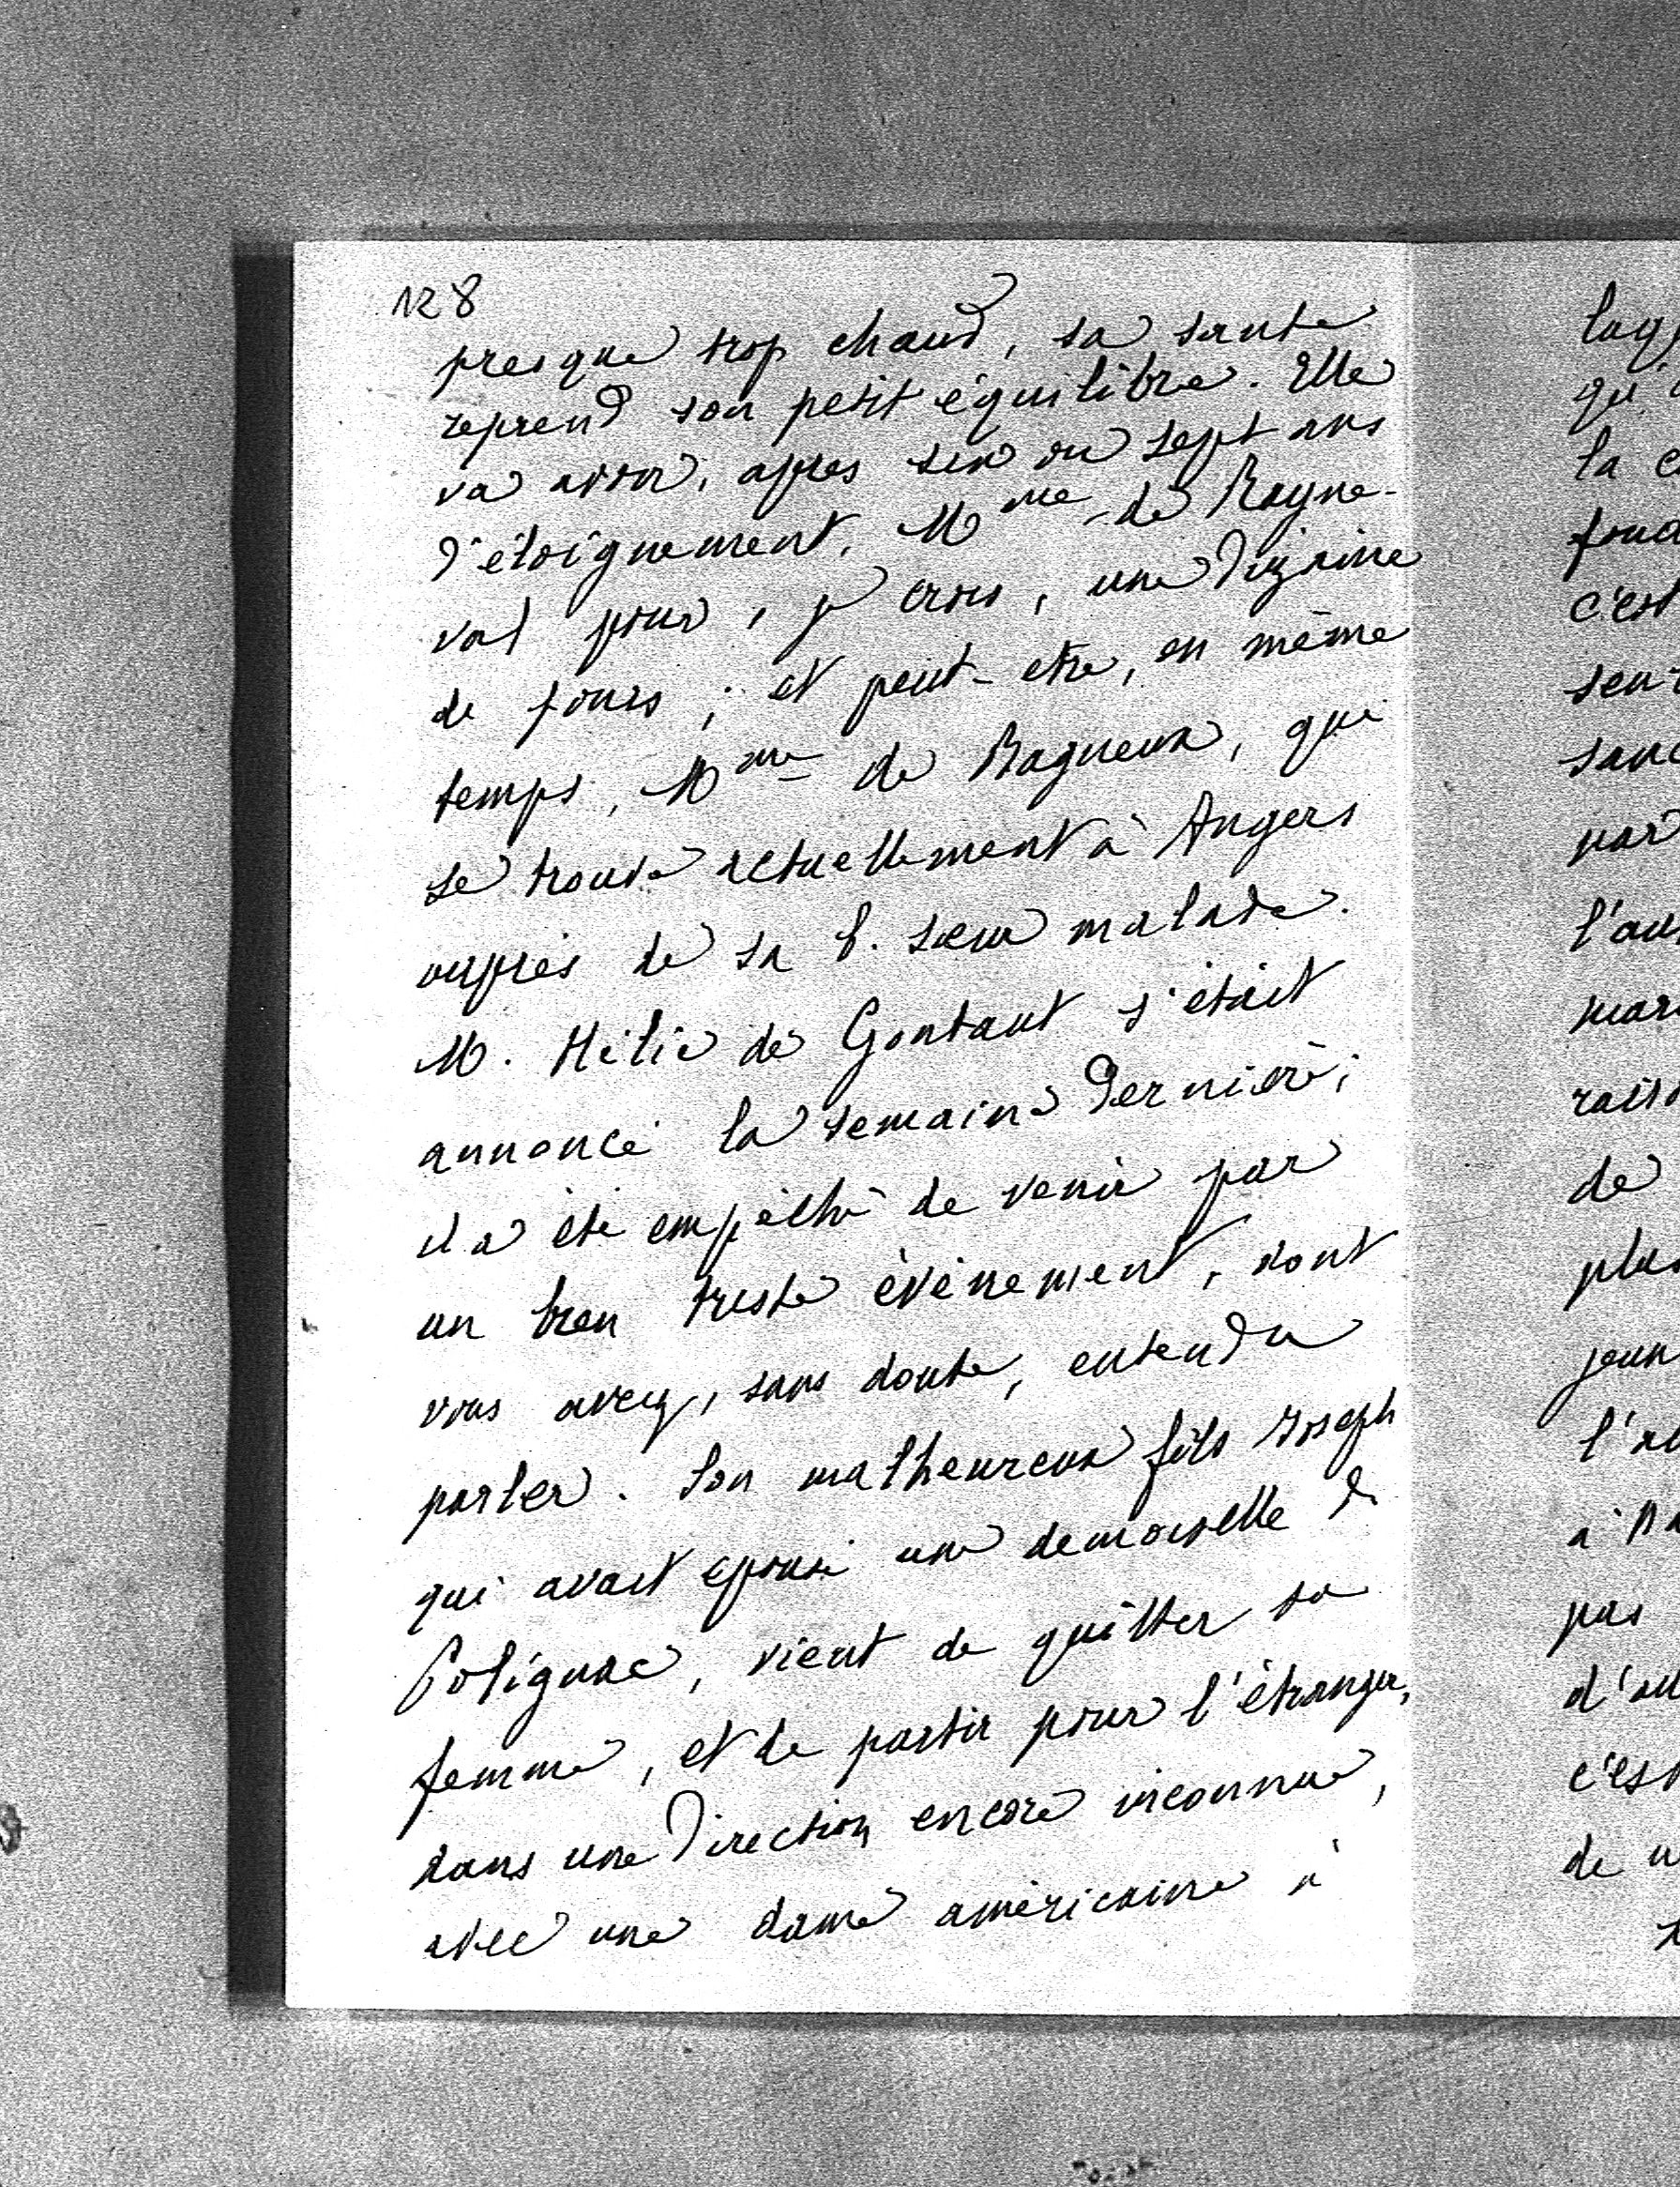 128
presque trop chaud, sa santé
reprend son petit équilibre. Elle
va avoir, après six ou sept ans
d'éloignement, Mme de Rayne-
val pour, je crois, une dizaine
de jours ; et peut-etre, en même
temps, Mme de Bagneux, qui
se trouve actuellement à Angers
auprès de sa b. sœur malade.
M. Hélie de Gontaut s'était
annoncé la semaine dernière ;
il a été empêché de venir par
un bien triste évènement, dont
vous avez, sans doute, entendu
parler. Son malheureux fils Joseph
qui avait épousé une demoiselle de
Polignac, vient de quitter sa
femme, et de partir pour l'étranger,
dans une direction encore inconnue,
avec une dame américaine à
qu'
la
c'est
par
de
pas
c'est
de